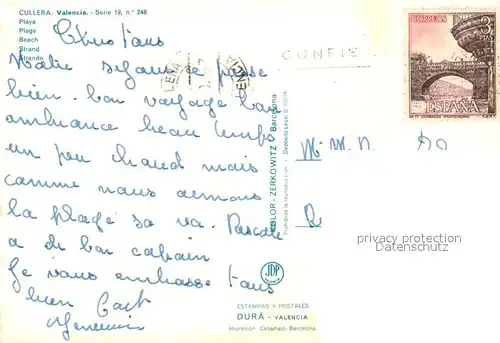 CULLERA. Valencia. - Serie 19, n.° 248
Playa
Plage
Beach
Strand
Strando
Chers tous
Notre séjour se passe
bien. bon voyage bon
ambiance beau temps
un peu chaud mais
comme nous aimons
la plage sa va. Pascale
a de bon copain
Je vous embrasse tous
bien
CORREOS
3
PTAS
ESPAÑA
KOLOR-ZERKOWITZ / Barcelona
Prohibida la reproducción
Depósito Legal B
JDP
ESTAMPAS Y POSTALES
DURÁ - VALENCIA
Impresión: Casamajó-Barcelona
privacy protection
Datenschutz